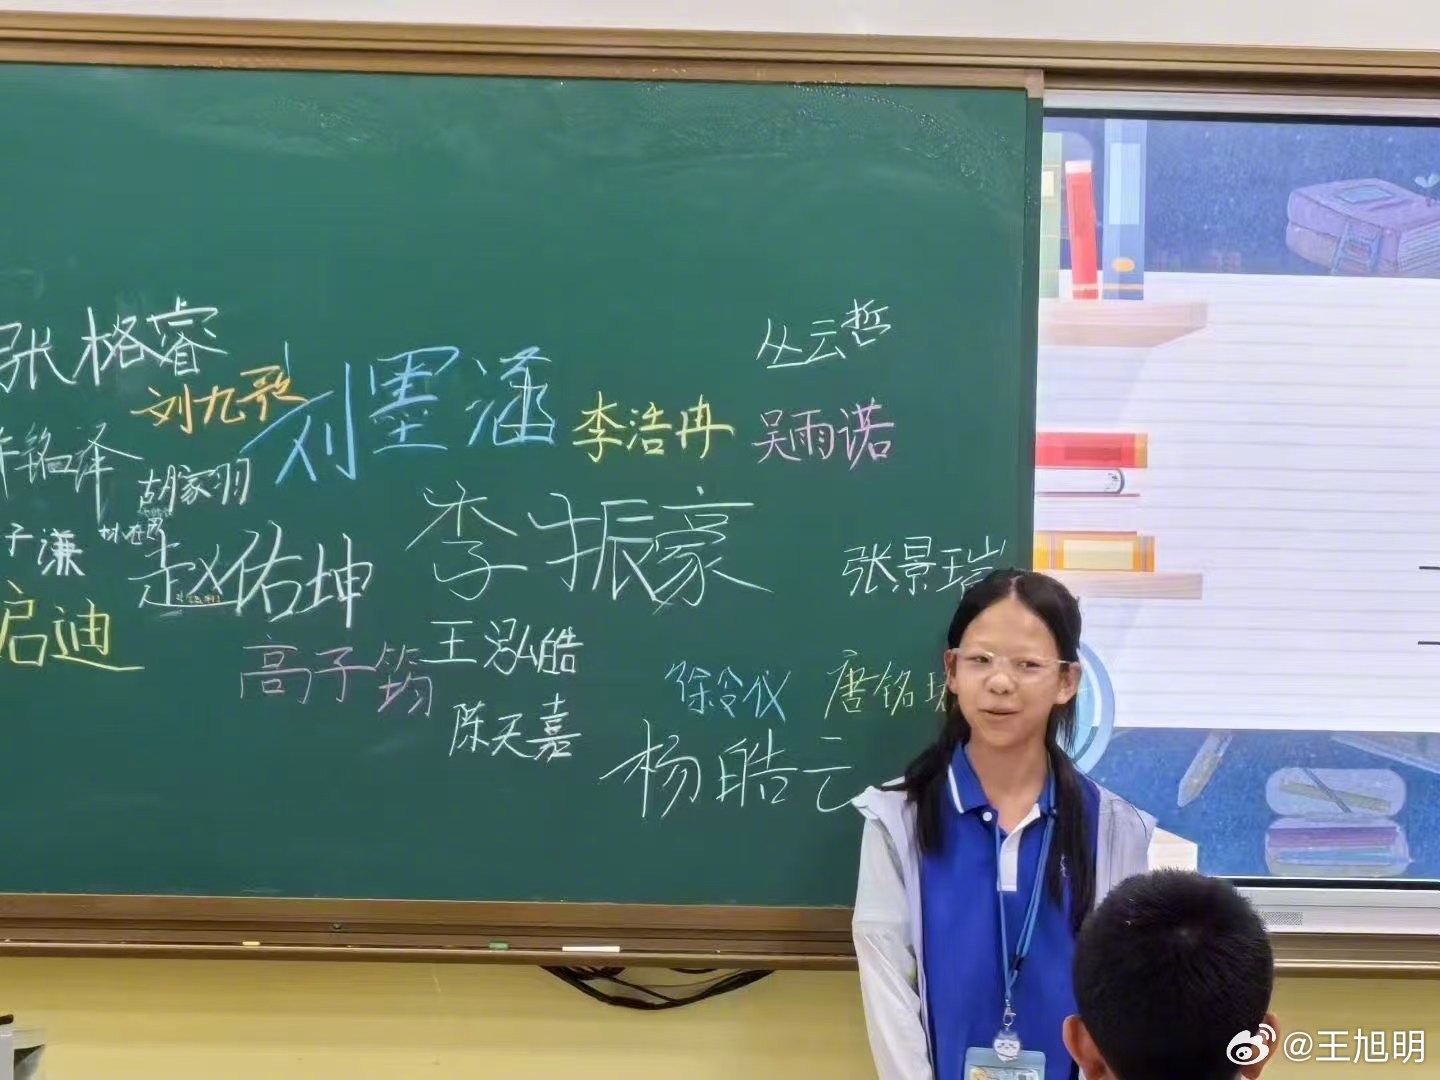 张格睿
刘九歌
刘墨涵
李浩冉
丛云哲
吴雨诺
铭泽
胡家羽
子谦
赵佑坤
李振豪
张景瑞
启迪
高子筠
王泓皓
陈天嘉
徐令仪
唐铭
杨皓云
@王旭明